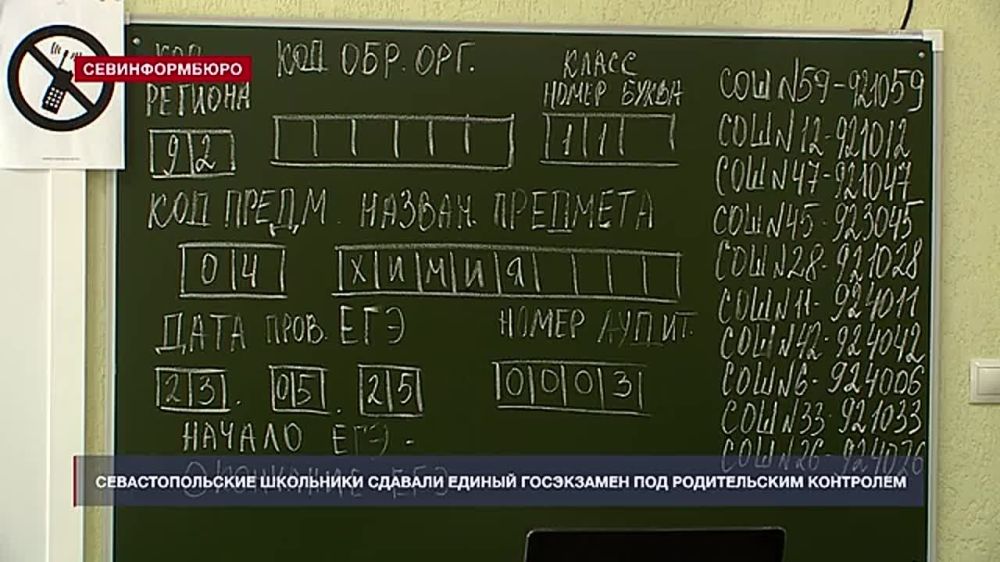 СЕВИНФОРМБЮРО
КОД
РЕГИОНА
92
КОД ОБР. ОРГ.
КЛАСС
НОМЕР БУКВА
11
КОД ПРЕДМ.
04
НАЗВАН. ПРЕДМЕТА
ХИМИЯ
ДАТА ПРОВ. ЕГЭ
23.05.25
НОМЕР АУДИТ.
0003
НАЧАЛО ЕГЭ -
ОКОНЧАНИЕ ЕГЭ
СОШ N59-921059
СОШ N12-921012
СОШ N47-921047
СОШ N45-923045
СОШ N28-921028
СОШ N11-924011
СОШ N42-924042
СОШ N6-924006
СОШ N33-921033
СОШ N26-924026
СЕВАСТОПОЛЬСКИЕ ШКОЛЬНИКИ СДАВАЛИ ЕДИНЫЙ ГОСЭКЗАМЕН ПОД РОДИТЕЛЬСКИМ КОНТРОЛЕМ